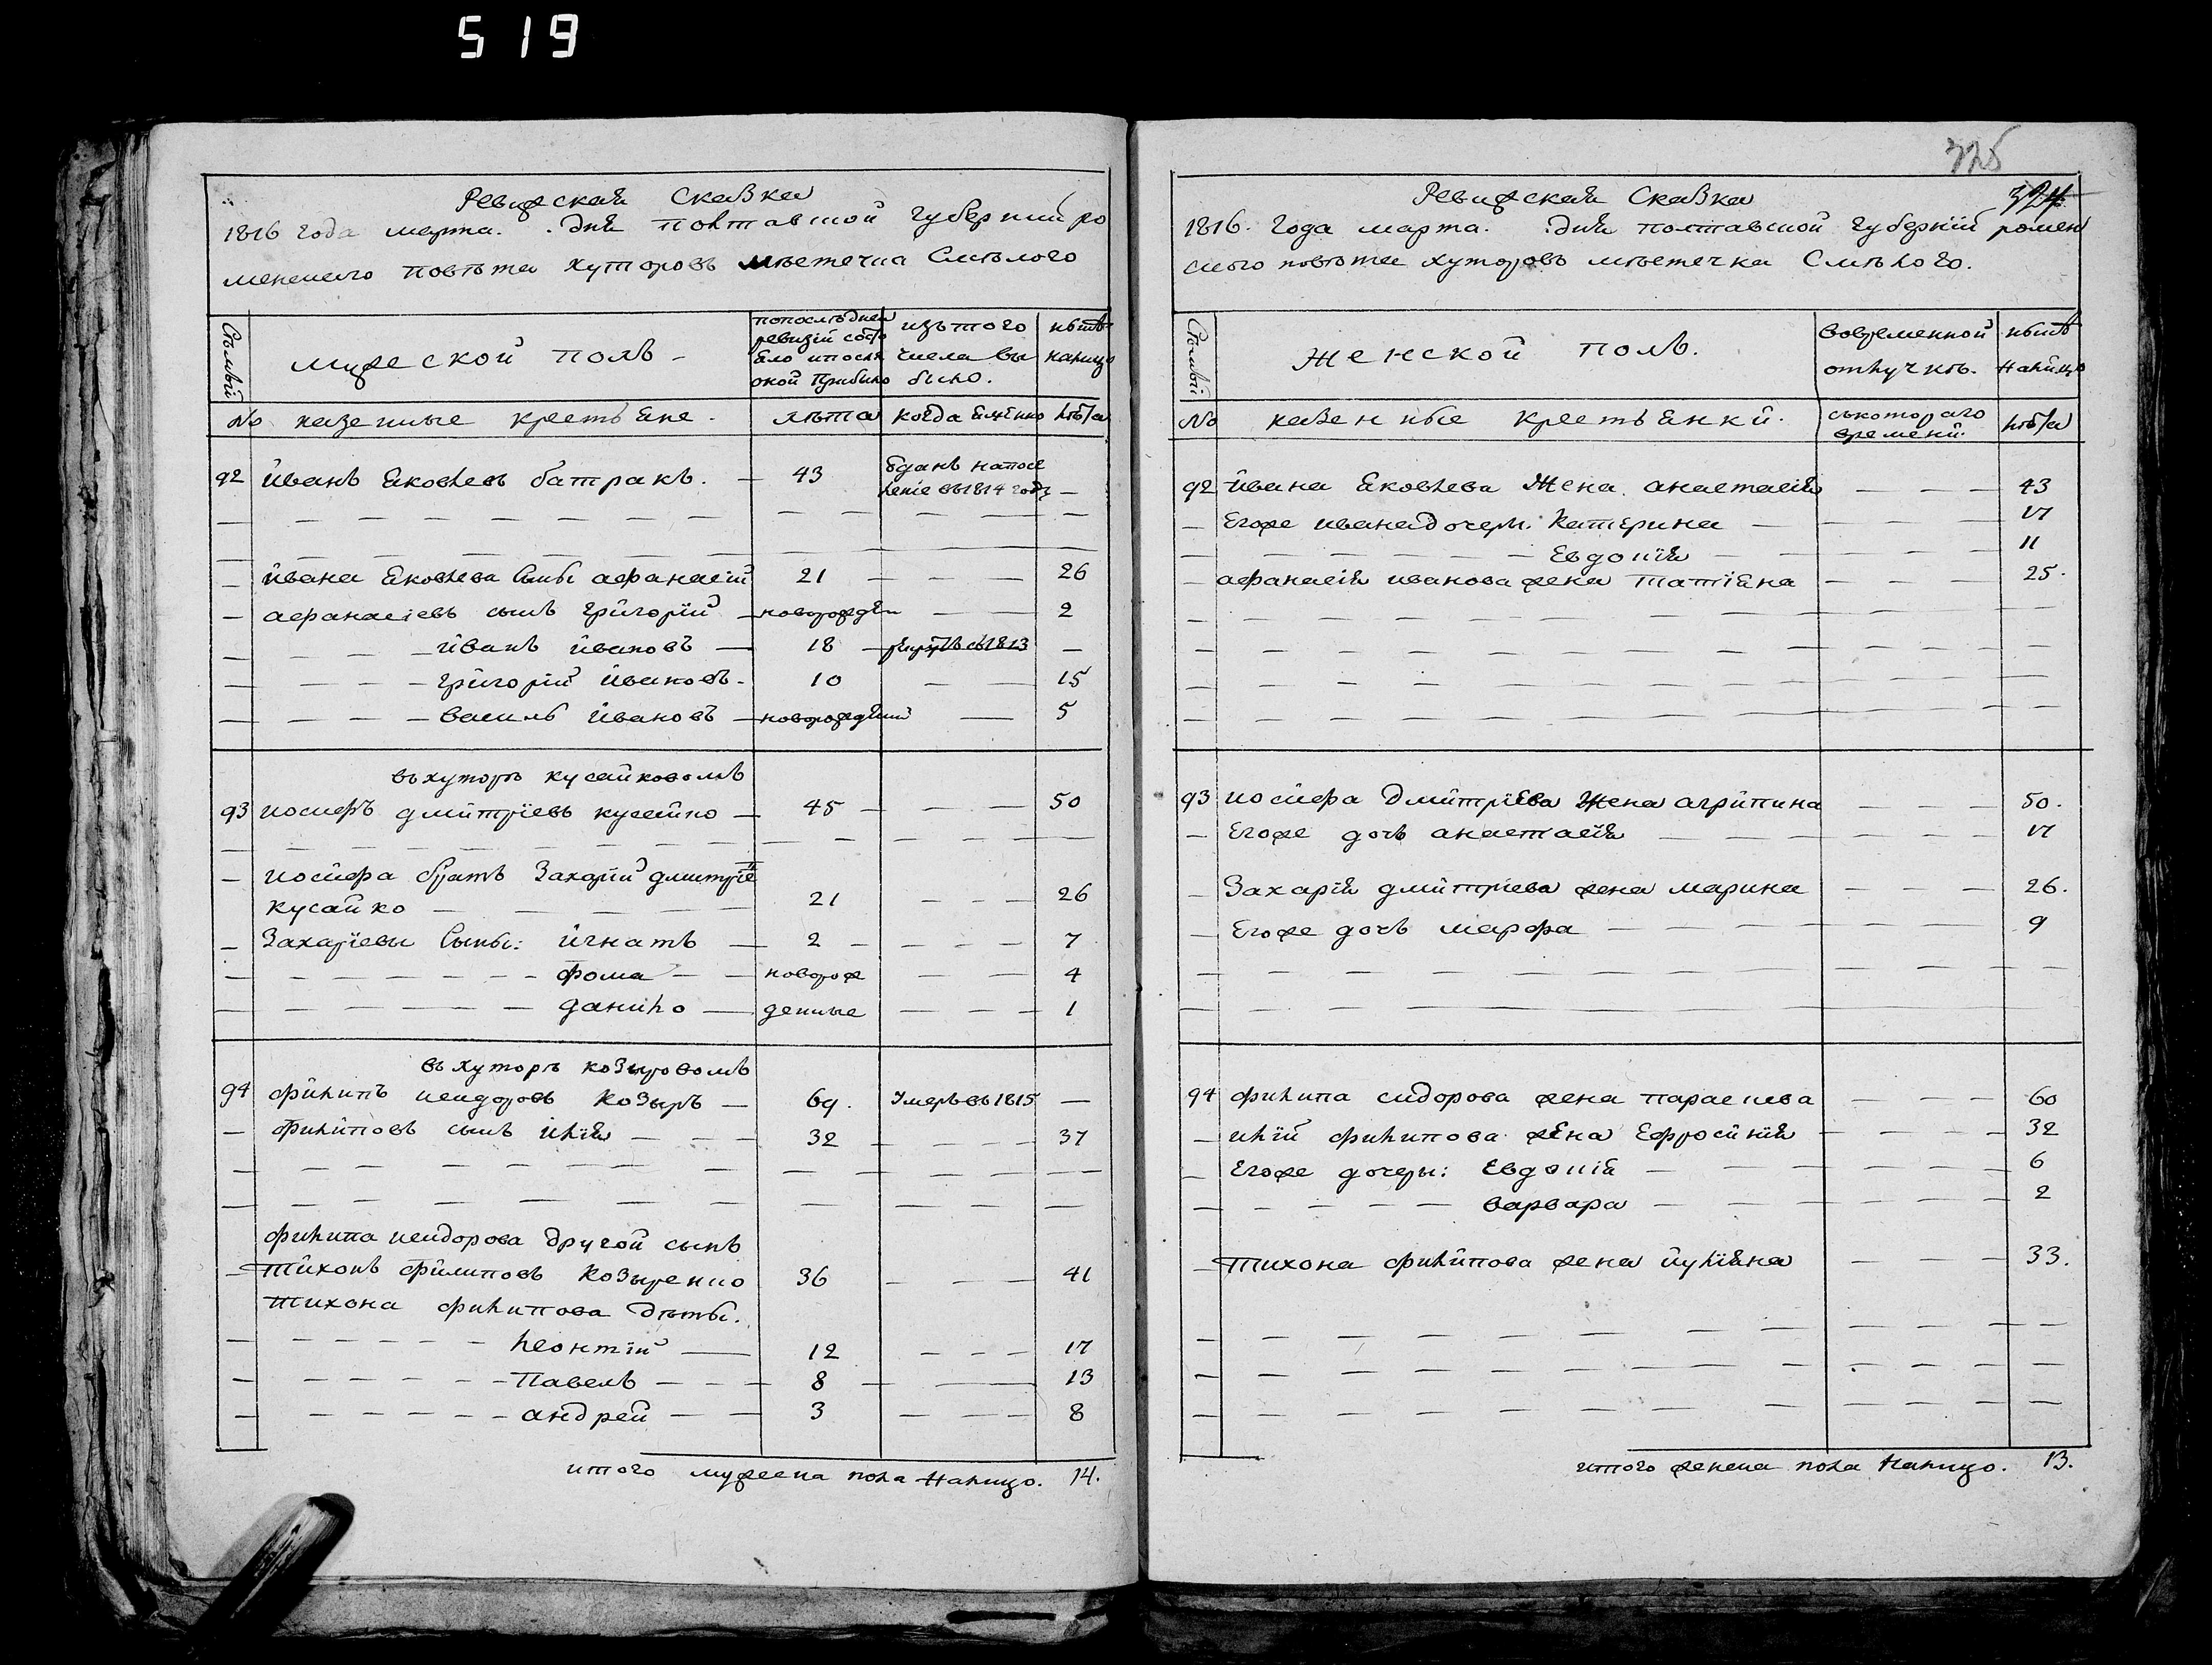 519
Ревизская Сказка
1816 года марта. . дня полтавской губернии ро
менского повѣта хуторовъ мѣстечка Смѣлого
Сѣмьи
мужеской полъ -
попослѣдней
ревизіи состо
яло ипосля
оной прибыло
изътого
числа вы
было.
нынѣ
налицо
№ казенные крестьяне. лѣта когда имянно лѣта
92 иванъ яковлевъ батракъ. — 43 зданъ напосе
леніе въ1814 году —
ивана яковлева сыны афанасій 21 — — — 26
афанасіевъ сынъ григорій — новорожден — — 2
— иванъ ивановъ — 18 — въ1813 —
— григорій ивановъ - 10 — — 15
— василь ивановъ — новорожденій — 5
въхуторѣ кусайковомъ
93 иосифъ дмитріевъ кусайко — 45 — — — 50
— иосифа братъ Захарій дмитріе
кусайко — — — — 21 — — — 26
— Захаріевы Сыны: игнатъ — 2 — — — 7
— фома — — новорож — — 4
— данило — денные — — — 1
въ хуторѣ козыровомъ
94 филипъ исидоровъ Козыръ — 69. Умеръ въ1815 —
— филиповъ сынъ илія — — — 32 — — — 37
филипа исидорова другой сынъ
— тихонъ филиповъ Козыренко 36 — — — 41
тихона филипова дѣты.
— леонтій — 12 — — — 17
— павелъ — — — 8 — — 13
— андрей — — 3 — — — 8
итого мужеска пола налицо. 14.
325
324
Ревизская Сказка
1816. Года марта. .дня полтавской губерніи ромен
ского повѣта хуторовъ мѣстечка Смѣлого.
Сѣмьи
женской полъ.
вовременной
отлучкѣ.
нынѣ
налицо
№ казенные крестьянки. съкотораго
времени. лѣта
92 ивана яковлева жена анастасія — — — 43
— Егоже ивана дочери: Катерина — — — 17
— Евдокія — — — 11
— афанасія иванова жена татіяна — — — 25.
93 иосифа дмитріева жена агрипина — — — 50.
— Егоже дочь анастасія — — — 17
— Захарія дмитріева жена марина — — — 26.
— Егоже дочь марфа — — — 9
94 филипа сидорова жена параскева — — — 60
— иліи филипова жена Ефросинія — — — 32
— Егоже дочеры: Евдокія — — — 6
— варвара — — — 2
— тихона филипова жена иуліяна — — — 33.
итого женска пола налицо. 13.